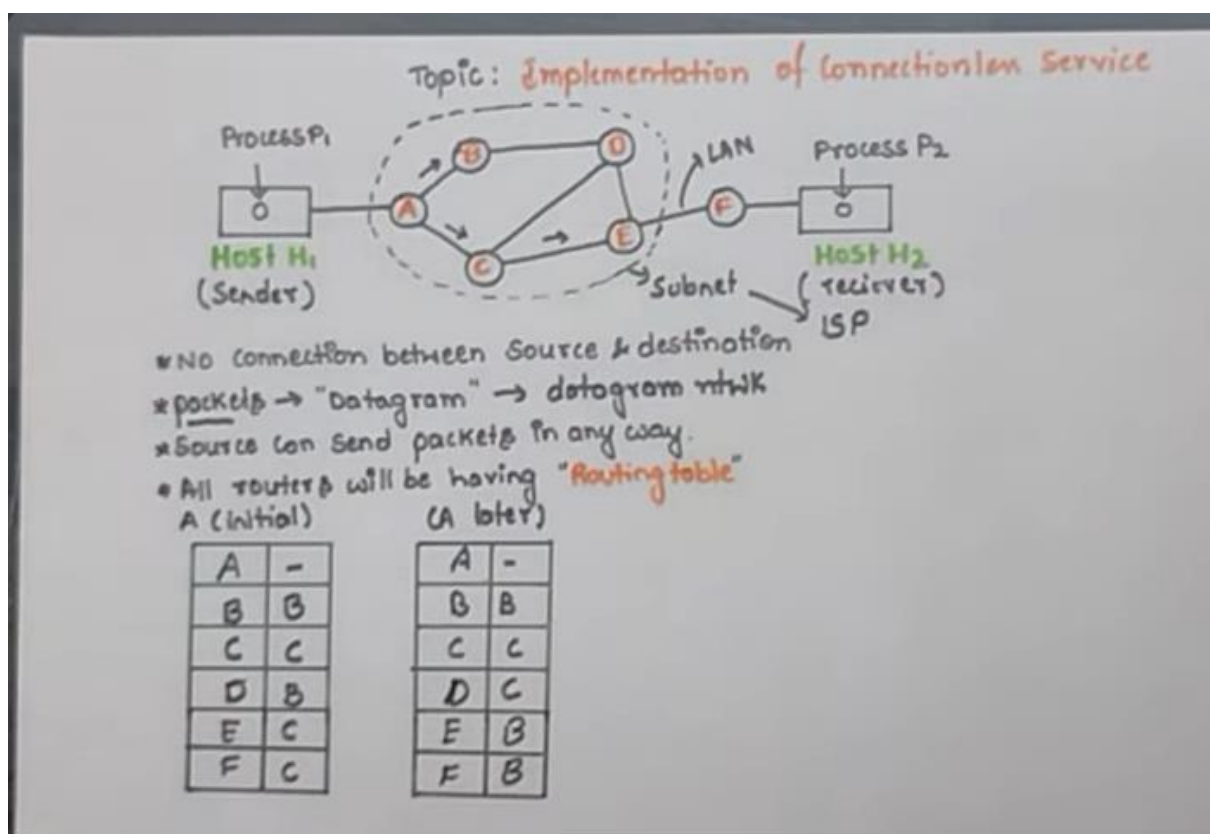 Topic: Implementation of Connectionless Service
Process P1
B
D
LAN
Process P2
A
F
Host H1
(Sender)
C
E
Host H2
(reciever)
Subnet
ISP
*No connection between Source & destination
*packets → "Datagram" → datagram ntwk
*Source can send packets in any way.
*All routers will be having "Routing table"
A (initial) (A later)
A - A -
B B B B
C C C C
D B D C
E C E B
F C F B